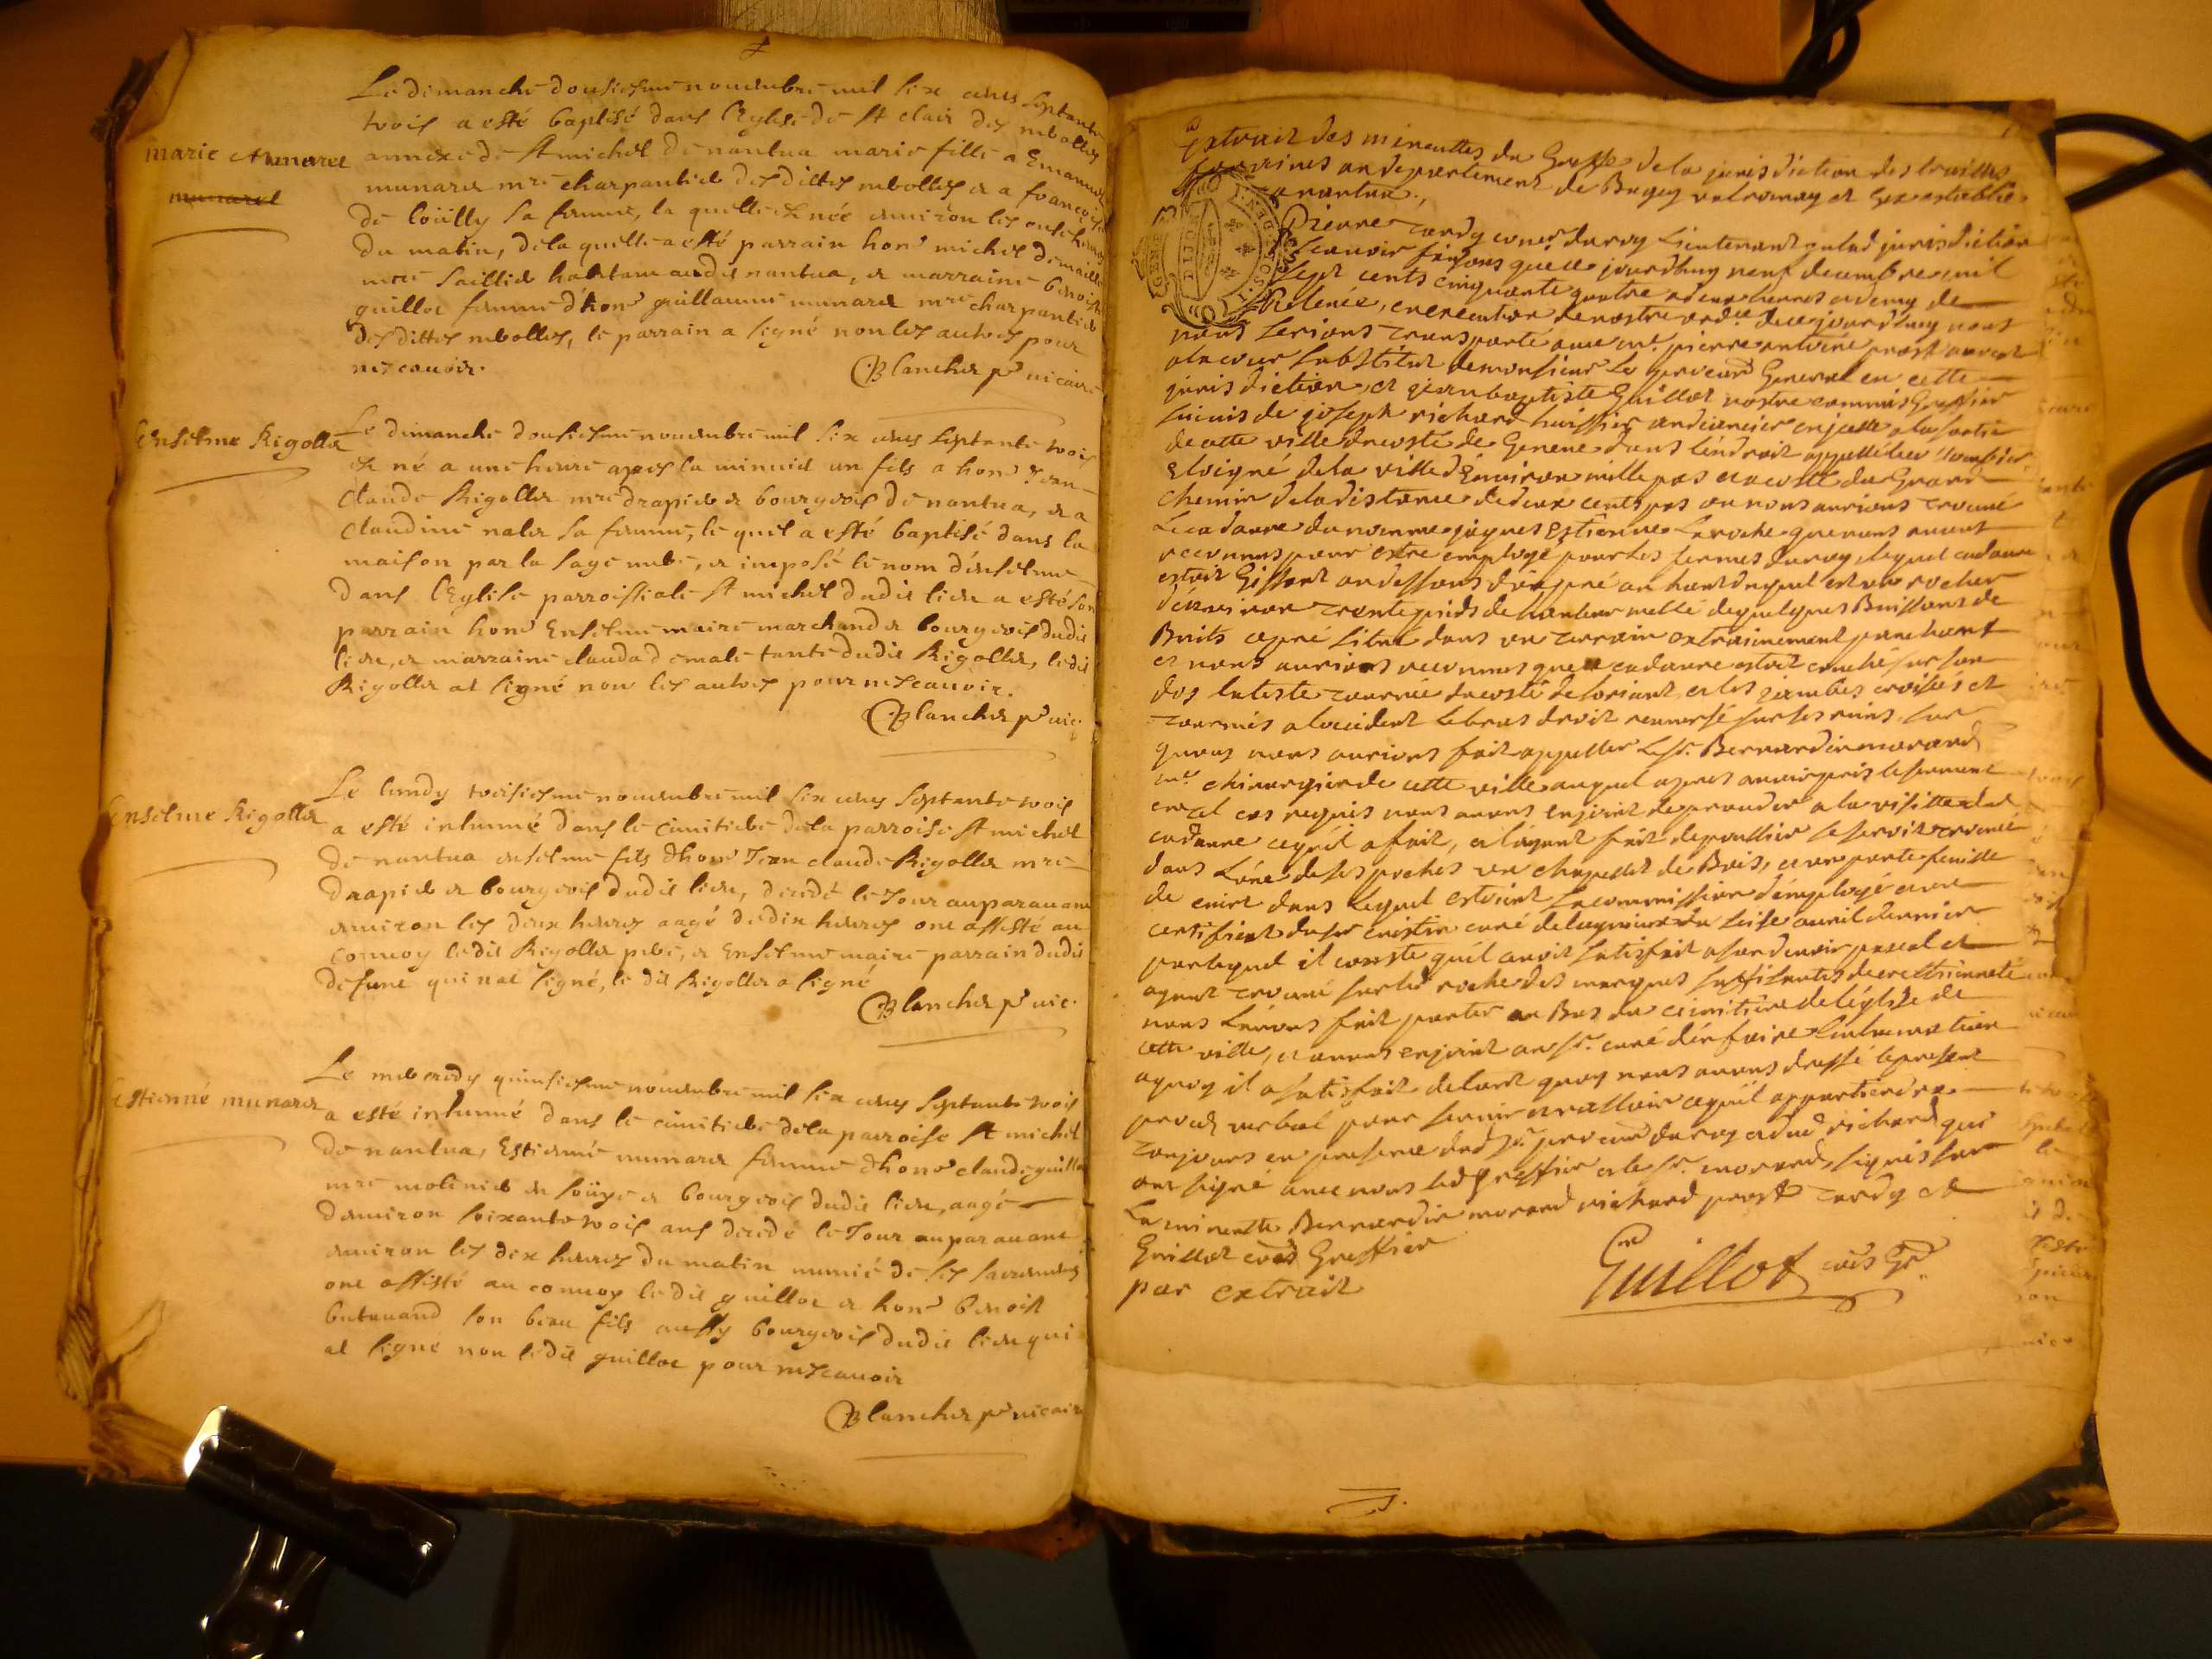 Le dimanche dousiesme nouembre mil six cens septante
trois a esté baptisé dans l'Eglise de St clair des
annexe de St michel de nantua marie fille a Emanuel
munard mre charpantier des dittes a francoise
de loüilly sa femme, la quelle est née enuiron les onse heures
du matin, de la quelle a esté parrain hon michel
habitant audit nantua, et marraine benoiste
guillot femme d'hon guillaume munard mre charpantier
des dittes le parrain a signé non les autres pour
ne scauoir.
Blanchet pr uicaire
marie munaret
munaret
Enselme Rigollet
Le dimanche dousiesme nouembre mil six cens septante trois
est né a une heure apres la minuit un fils a hon Jean
Claude Rigollet mre drapier et bourgeois de nantua, et a
Claudine sa femme, le quel a esté baptisé dans la
maison par la sage a imposé le nom d'enselme
dans l'Eglise parroissiale St michel dudit lieu a esté son
parrain hon Enselme maire marchand et bourgeois dudit
lieu, et marraine clauda tante dudit Rigollet, ledit
Rigollet at signé non les autres pour ne scauoir.
Blanchet pr uic.
Enselme Rigollet
Le lundy treisiesme nouembre mil six cens septante trois
a esté inhumé dans le cimitiere de la parroise St michel
de nantua enselme fils d'hon Jean claude Rigollet mre
drapier et bourgeois dudit lieu, decedé le Jour auparauant
enuiron les deux heures aagé de dix heures ont assisté au
conuoy ledit Rigollet pere, et Enselme maire parrain dudit
defunt qui nat signé, le dit Rigollet a signé
Blanchet pr uic.
Estienne munard
Le mecredy quinsiesme nouembre mil six cens septante trois
a esté inhumé dans le cimitiere de la parroise St michel
de nantua, Estienne munard femme d'hon claude guillot
mre bourgeois dudit lieu, aagée
denuiron soixante trois ans decedé le Jour auparauant
enuiron les dix heures du matin munie de ses sacrements
ont assisté au conuoy ledit guillot et hon benoist
son beau fils aussy bourgeois dudit lieu qui
at signé non ledit guillot pour ne scauoir
Blanchet pr uicaire
Extrait des minuttes du Greffe de la jurisdiction des traittes
foraines au departement de Bugey valromey et Gex establie
a nantua.
GENER DIJON
Pierre Tardy coner du roy Lieutenant en lad jurisdiction
scauoir faisons que ce jourdhuy neuf decembre mil
sept cents cinquante quatre a deux heures et demy de
Releuée, en execution de nostre ordce de ce jourdhuy nous
nous serions transporté auec me pierre antoine prost auocat
a la cour substitut de monsieur le procureur General en cette
jurisdiction, et jean baptiste Guillot nostre commis Greffier
suiuis de joseph richard huissier audiancier en icelle a la sortie
de cette ville du costé de Geneue dans lendroit appellé
Eloigné de la ville d'Enuiron mille pas et a costé du Grand
chemin de la distance de deux cents pas ou nous aurions trouué
Le cadaure du nomme jaques Estienne Laroche que nous auons
reconnus pour estre employé pour les fermes du roy lequel cadaure
estoit Gissant au dessous d'un pré au haut duquel est un rocher
d'enuiron trente pieds de hauteur mellé de quelques Buissons de
Buits ce pré situé dans un terrain extremement panchant
et nous aurions reconnus que ce cadaure estoit couché sur son
dos la teste tournée du costé de loriant et les jambes croisées et
tournés a locident le bras droit renuersé sur ses reins. sur
quoy nous aurions fait appeller le Sr. Bernardin morand
me chirurgien de cette ville auquel apres auoir pris le serment
en tel cas requis nous auons enjoint de proceder a la visitte dud
cadaure ce quil a fait, et l'ayant fait depouiller se seroit trouué
dans l'une de ses poches un chapellet de Bois, et un porte feuille
de cuire dans lequel estoient sa commission d'employé auec
certificat du sr curé de du seise auril dernier
par lequel il conste quil auoit satisfait a son deuoir pascal et
ayant trouué sur led roche des marques suffisantes de crestienneté
nous l'auons fait porter au Bas du cimitiere de léglise de
cette ville, et auons enjoint au Sr. curé d'en faire linhumation
aquoy il a satisfait de tout quoy nous auons dressé le present
procez verbal pour seruir et valloir ce quil appartiendra.
toujours en presence dud Sr procureur du roy et dud richard qui
ont signé auec nous led greffier et le Sr. morand, signés sur
La minutte Bernardin morand richard prost Tardy et
Guillot coms Greffier
par extrait
Guillot coms Gr